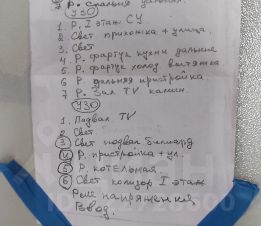 7 Р. Спальня дальняя
УЗО
1. Р. I этаж СУ.
2. Свет прихожка + улица
3. Свет
4. Р. фартук кухни дальние
5. Р. фартук холод вытяжка
6 Р. дальняя пристройка
7 Р. Зал TV камин.
УЗО
1. Подвал TV
2. Свет
3 Свет подвал бильярд
4 Р. пристройка + ул.
5 Р. котельная
6 Свет коридор I этаж
Реле напряжения
Ввод.